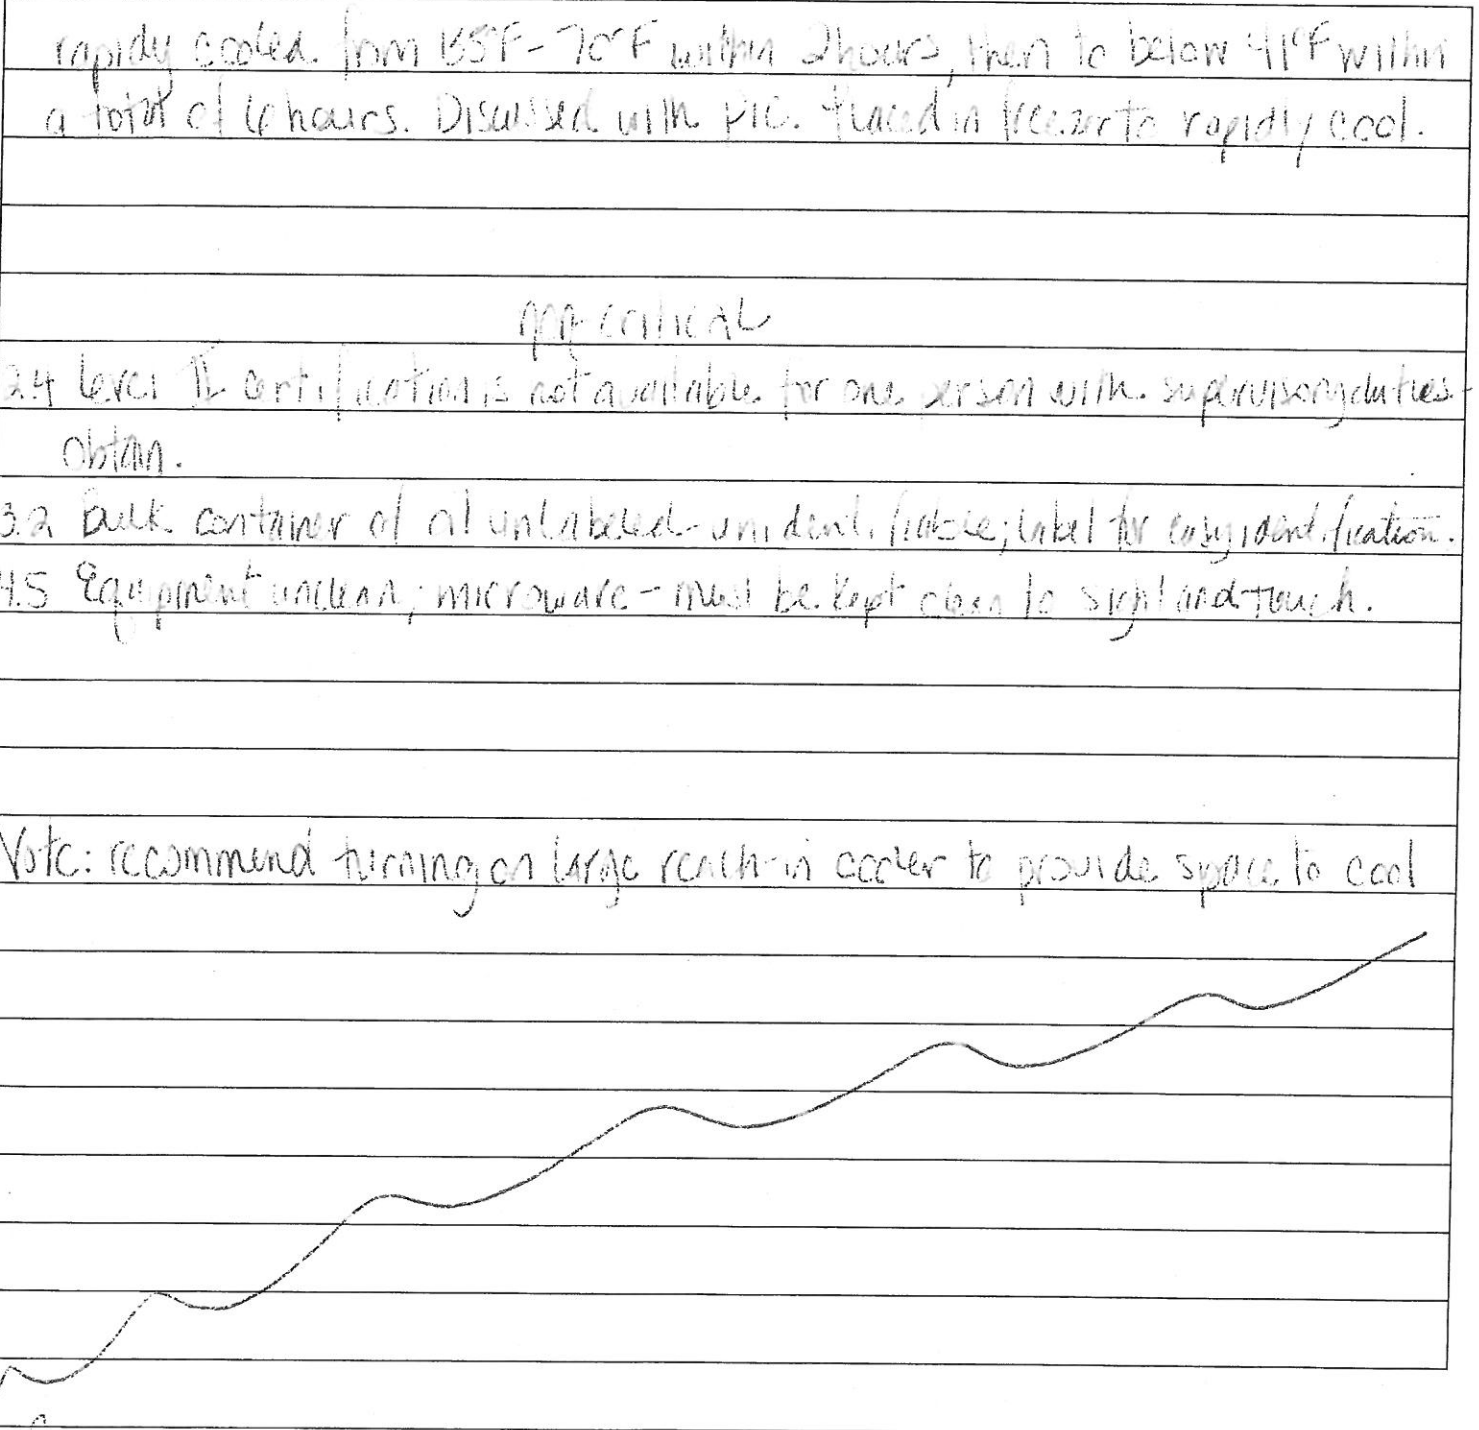 rapidly cooled from 135°F-70°F within 2hours, then to below 41°F within
a total of 6 hours. Discussed with PIC. Placed in freezer to rapidly cool.
non-critical
2.4 Level II certification is not available for one person with supervisory duties-
obtain.
3.2 Bulk container of oil unlabeled-unidentifiable; label for easy identification.
4.5 Equipment unclean; microwave - must be kept clean to sight and touch.
Note: recommend turning on large reach-in cooler to provide space to cool